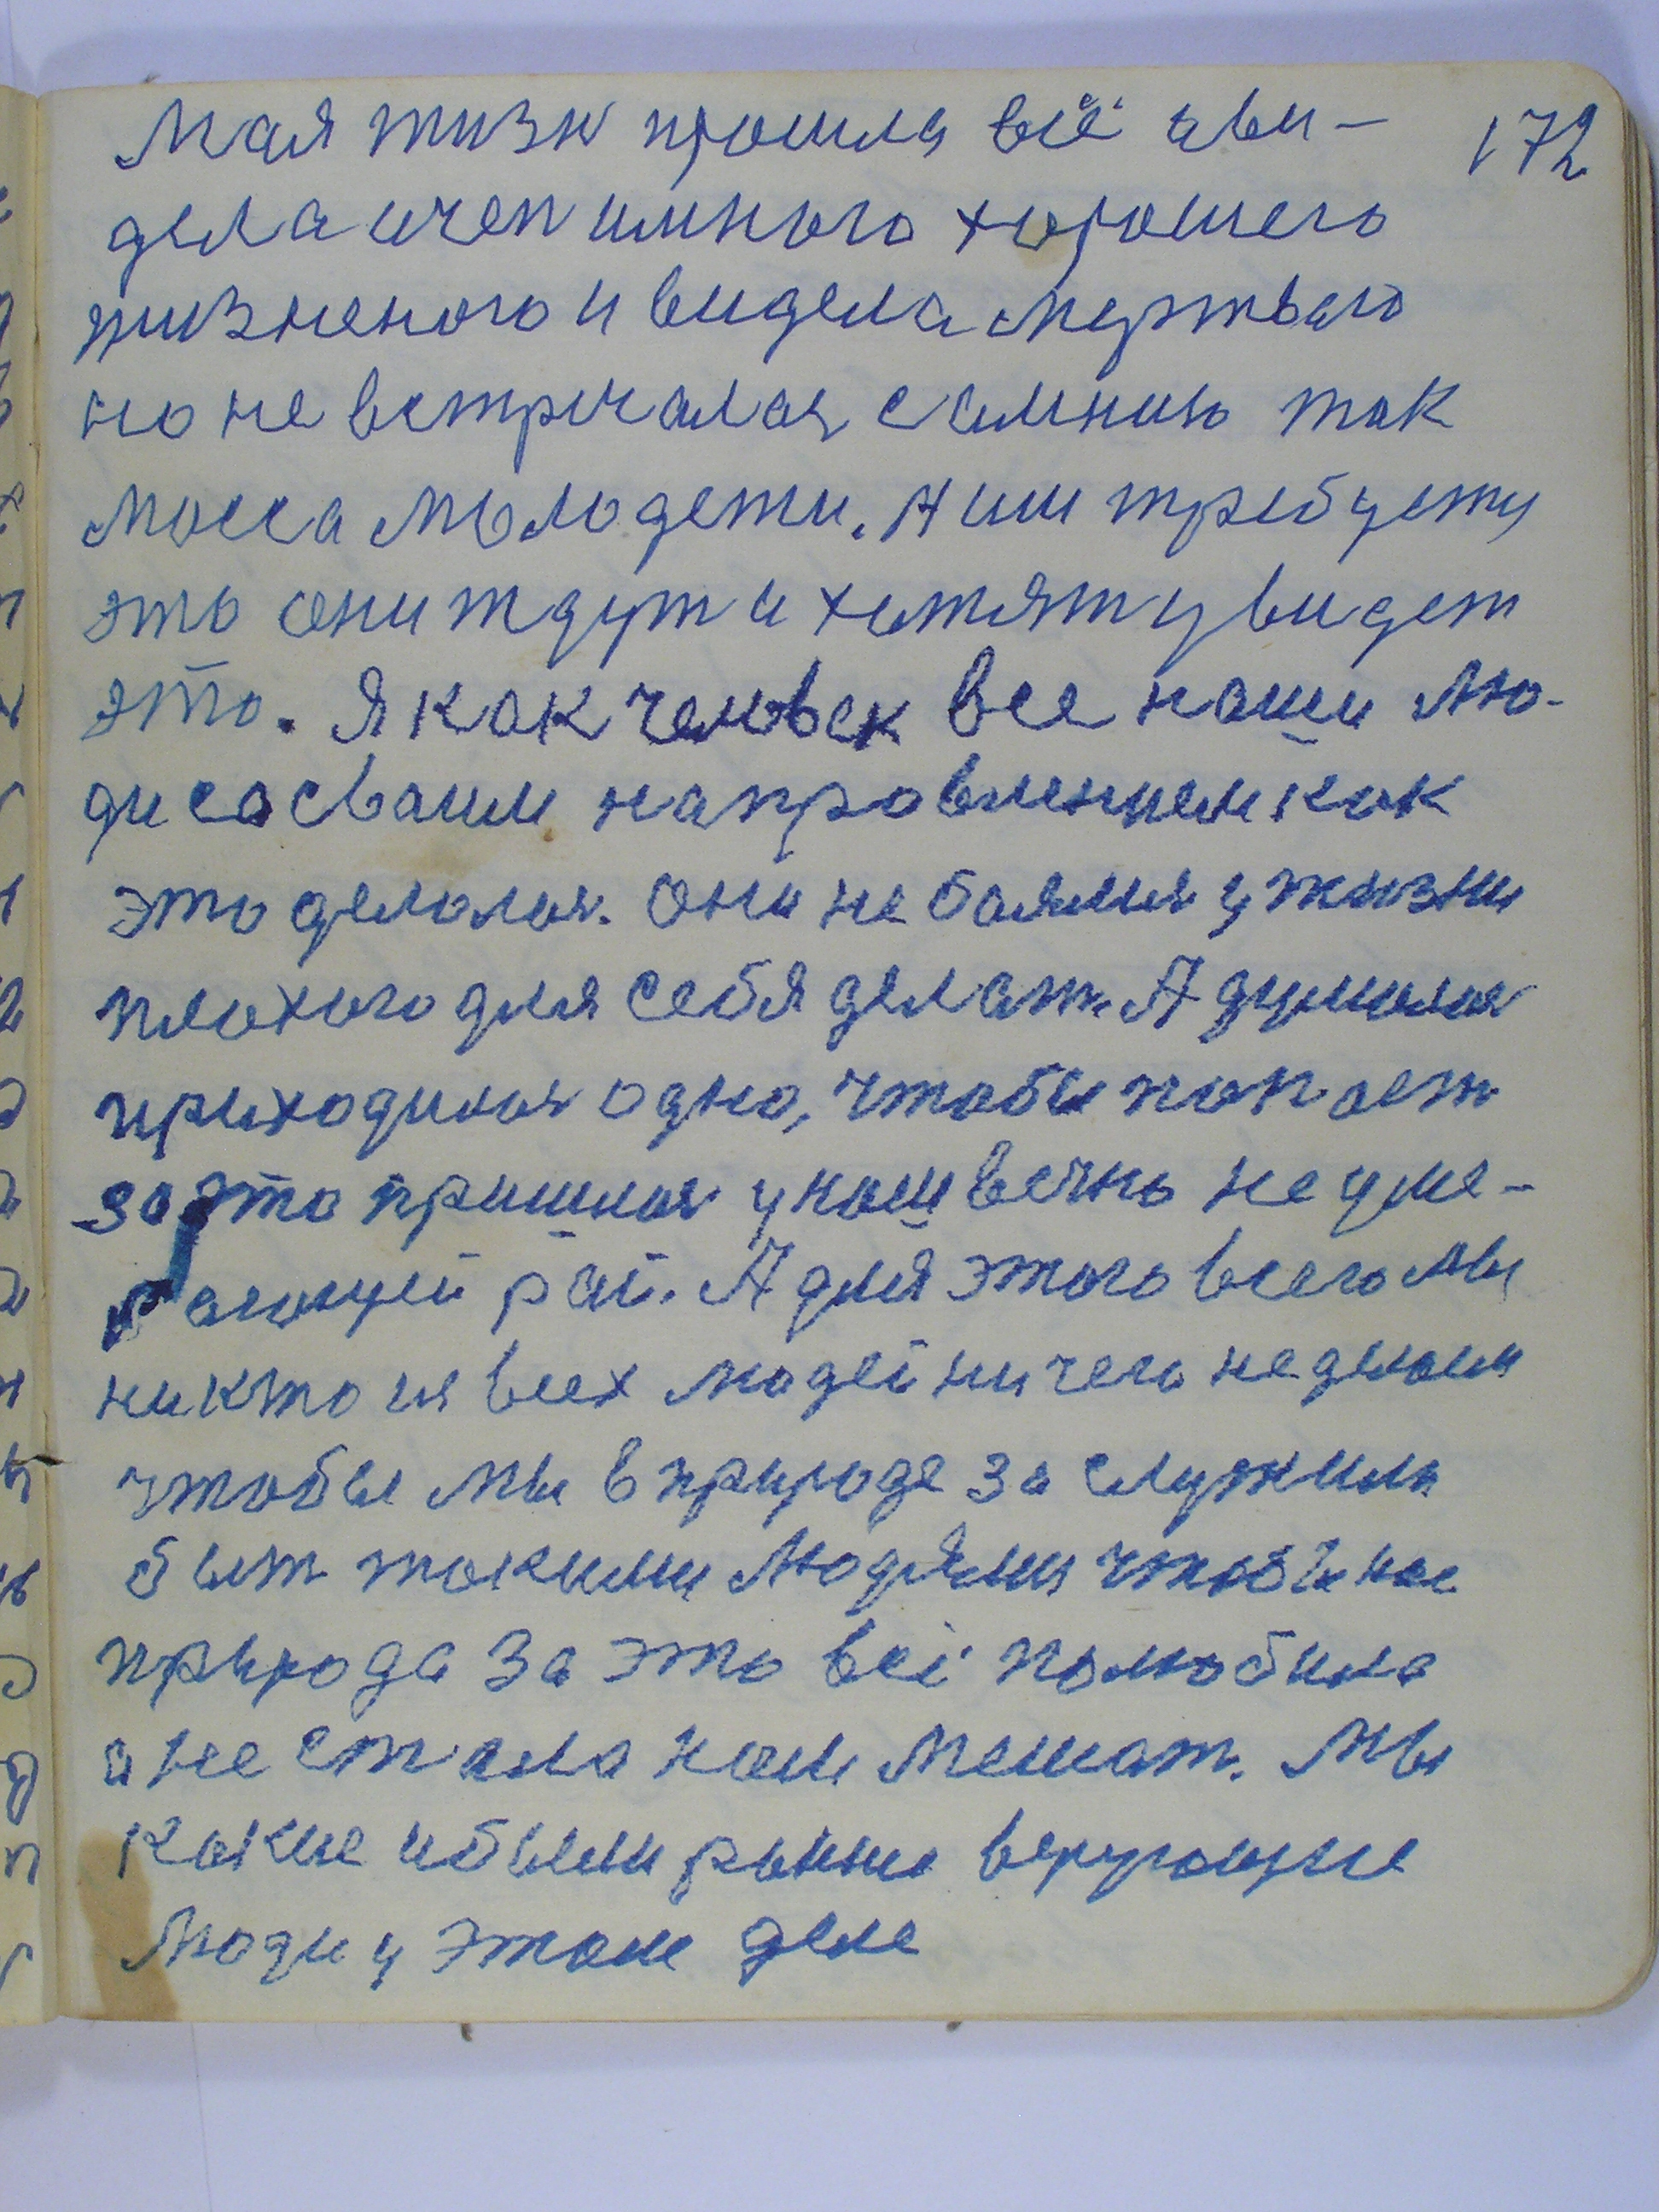 Мая жизн прошла всё уви- 172
дела очен имного хорошего
жизненого и видела мертвого
но не встричалася самною так
масса молодежи. А им требуется
это они ждут и хотят увидет
это. Я как человек все наши лю-
ди сосваим направлением как
это делалося. Они не баялися у жизни
плохого для себя делат. А думалося
приходилося одно, чтобы попаст
за это пришлося у наш вечно не уме-
рающей рай. А для этого всего мы
никто из всех людей ничего не делаем
чтобы мы в природе за служили
быт такими людями чтобы нас
природа за это всё полюбила
и не стала нам мешат. Мы
какие и были раньше верующие
люди у этом деле